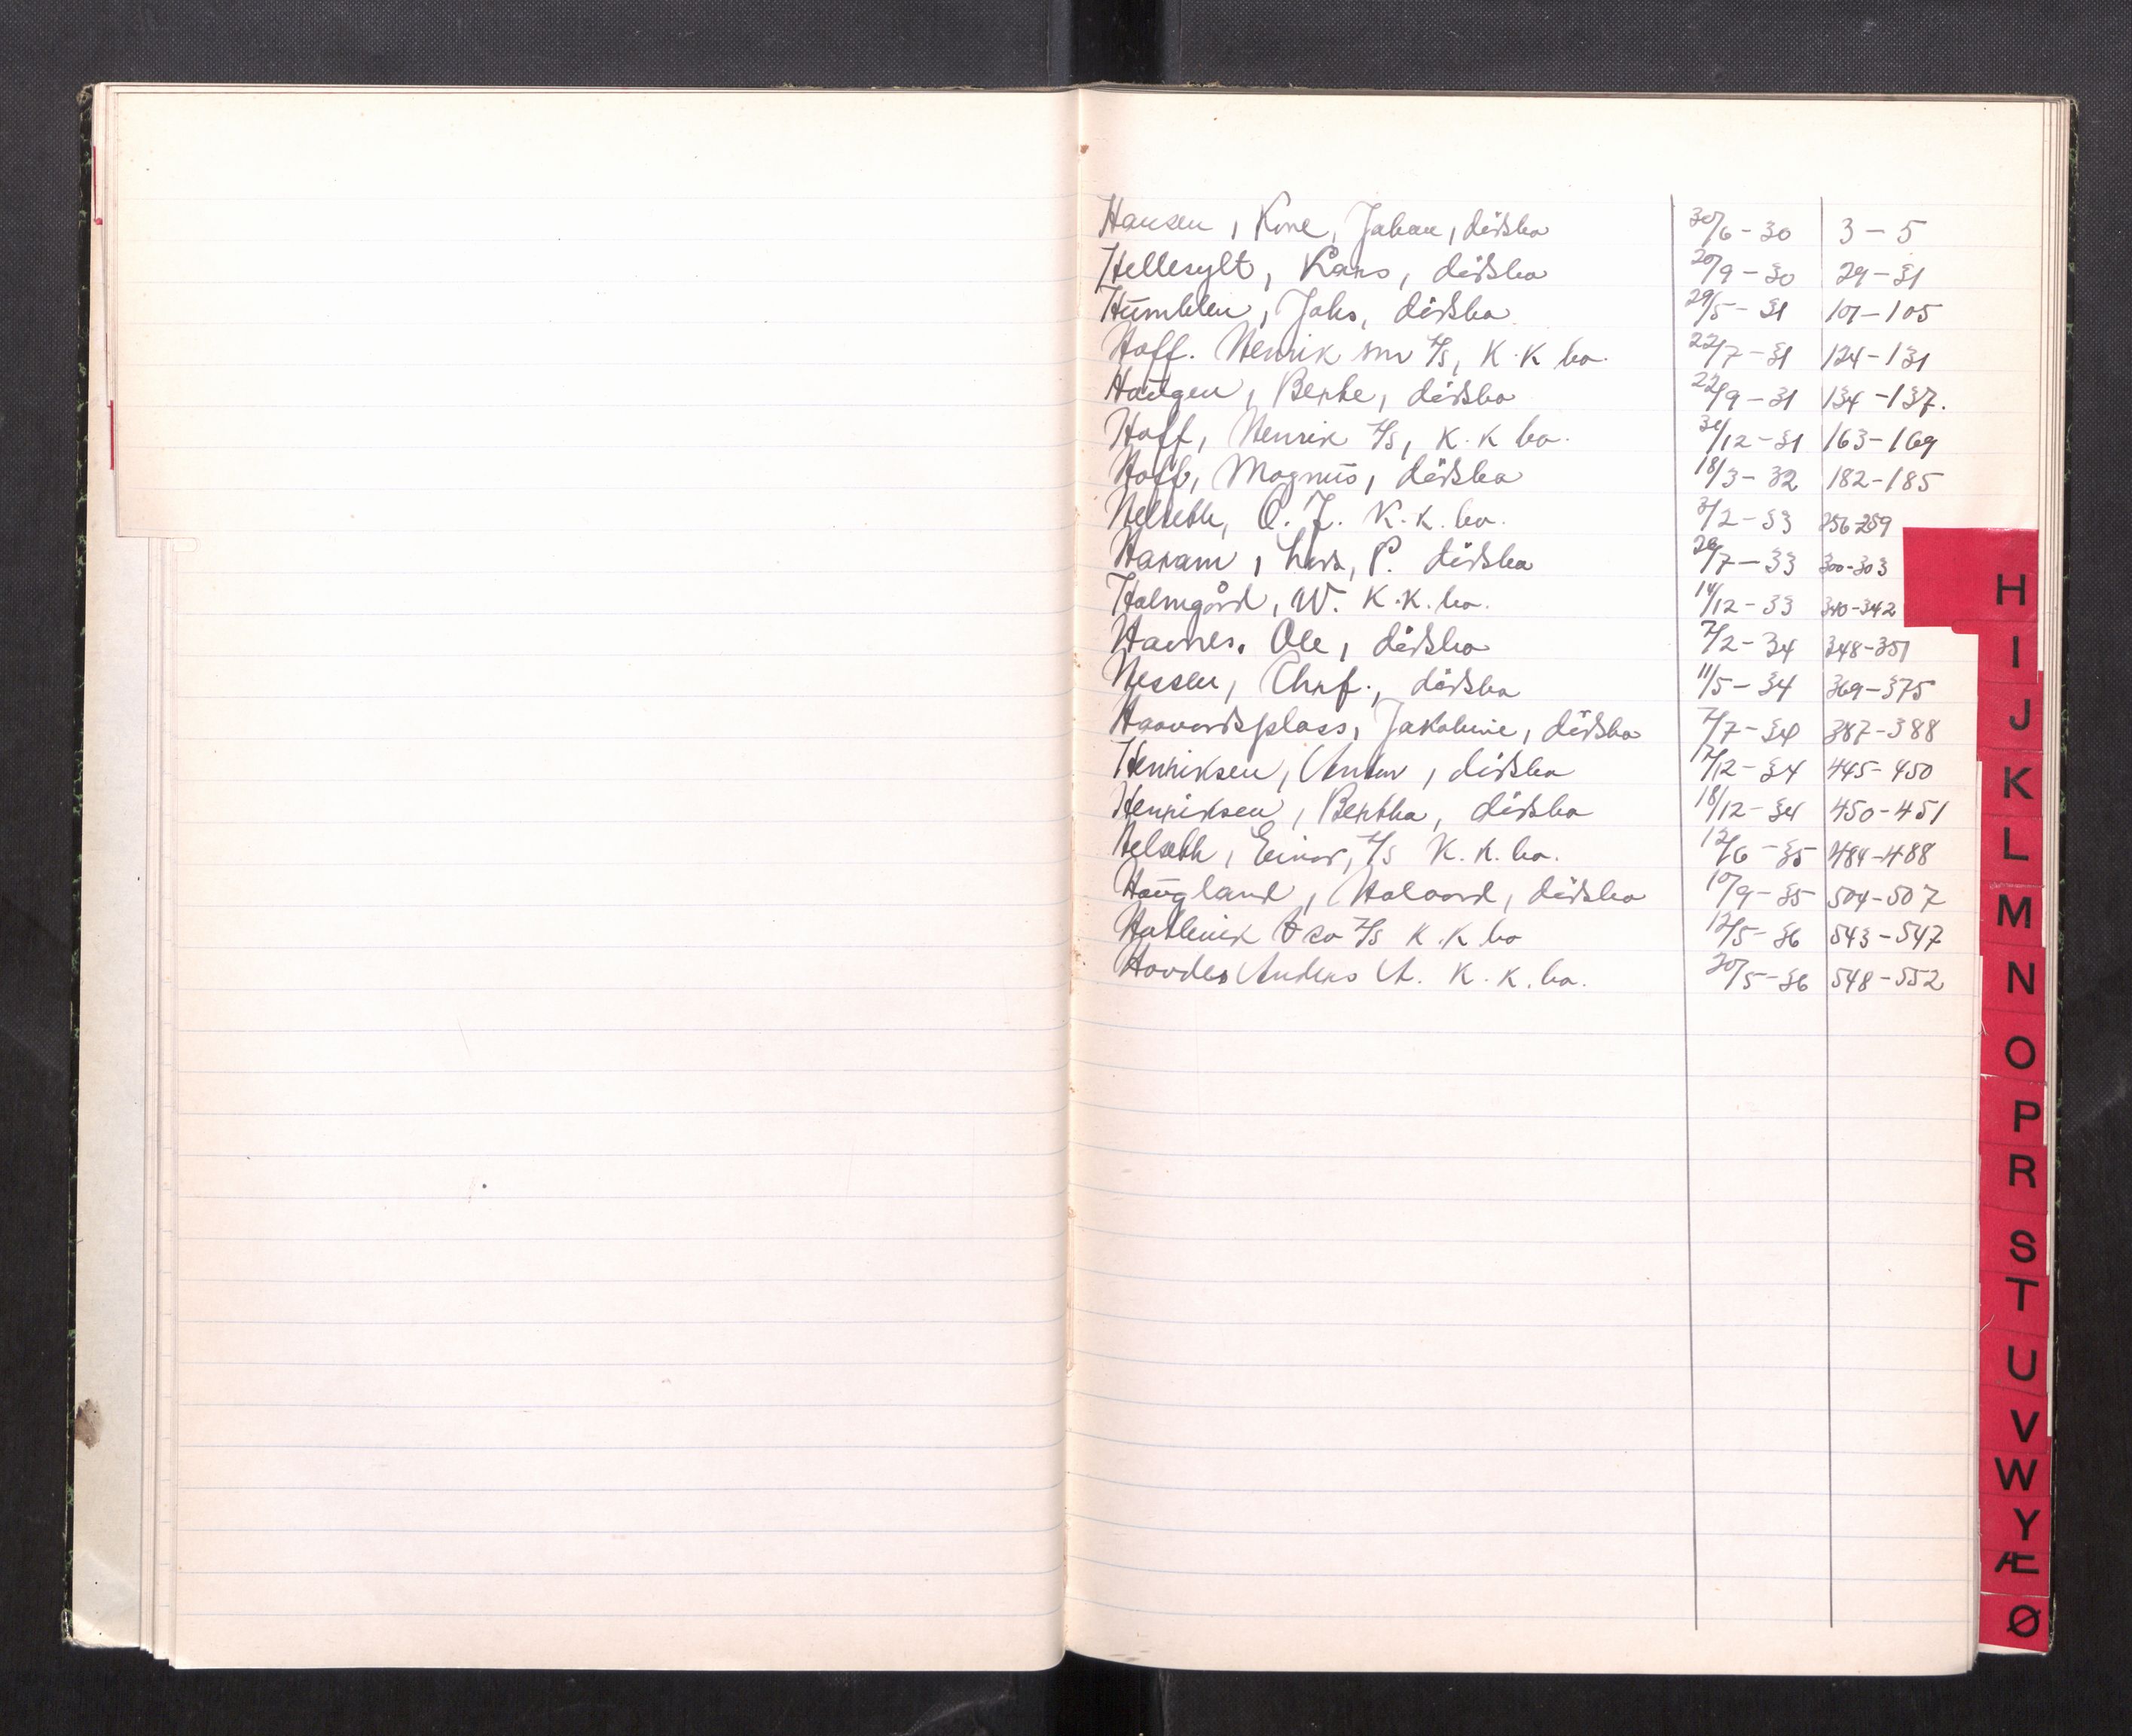 Hansen, Kone, Johan, dødsbo 30/6-30 3-5
Hellesylt, Lars, dødsbo 20/9-30 29-31
Humblen, Johs, dødsbo 29/5-31 101-105
Hoff. Henrik snr A/s, K.K bo. 22/7-31 124-131
Haugen, Berte, dødsbo 22/9-31 134-137.
Hoff, Henrik A/s, K.K bo. 31/12-31 163-169
Hoff, Magnus, dødsbo 18/3-32 182-185
Helseth, O. J. K.K. bo. 3/2-33 256-259
Haram, P. dødsbo 7-33 300-303
Holmgård, W. K.K. bo. 14/12-33 340-342
Havnes. Ole, dødsbo 7/2-34 348-351
Hessen, Chrf., dødsbo 11/5-34 369-375
Haavardsplass, Jakobine, dødsbo 7/7-34 387-388
Henriksen, Anton, dødsbo 17/12-34 445-450
Henriksen, Bertha, dødsbo 18/12-34 450-451
Helseth, Einar, A/s K.K. bo. 12/6-35 484-488
Haugland, Halvard, dødsbo 10/9-35 504-507
& co A/s K.K bo 12/5-36 543-547
Hovdes Anders A. K.K. bo. 20/5-36 548-552
H
I
J
K
L
M
N
O
P
R
S
T
U
V
W
Y
Æ
Ø